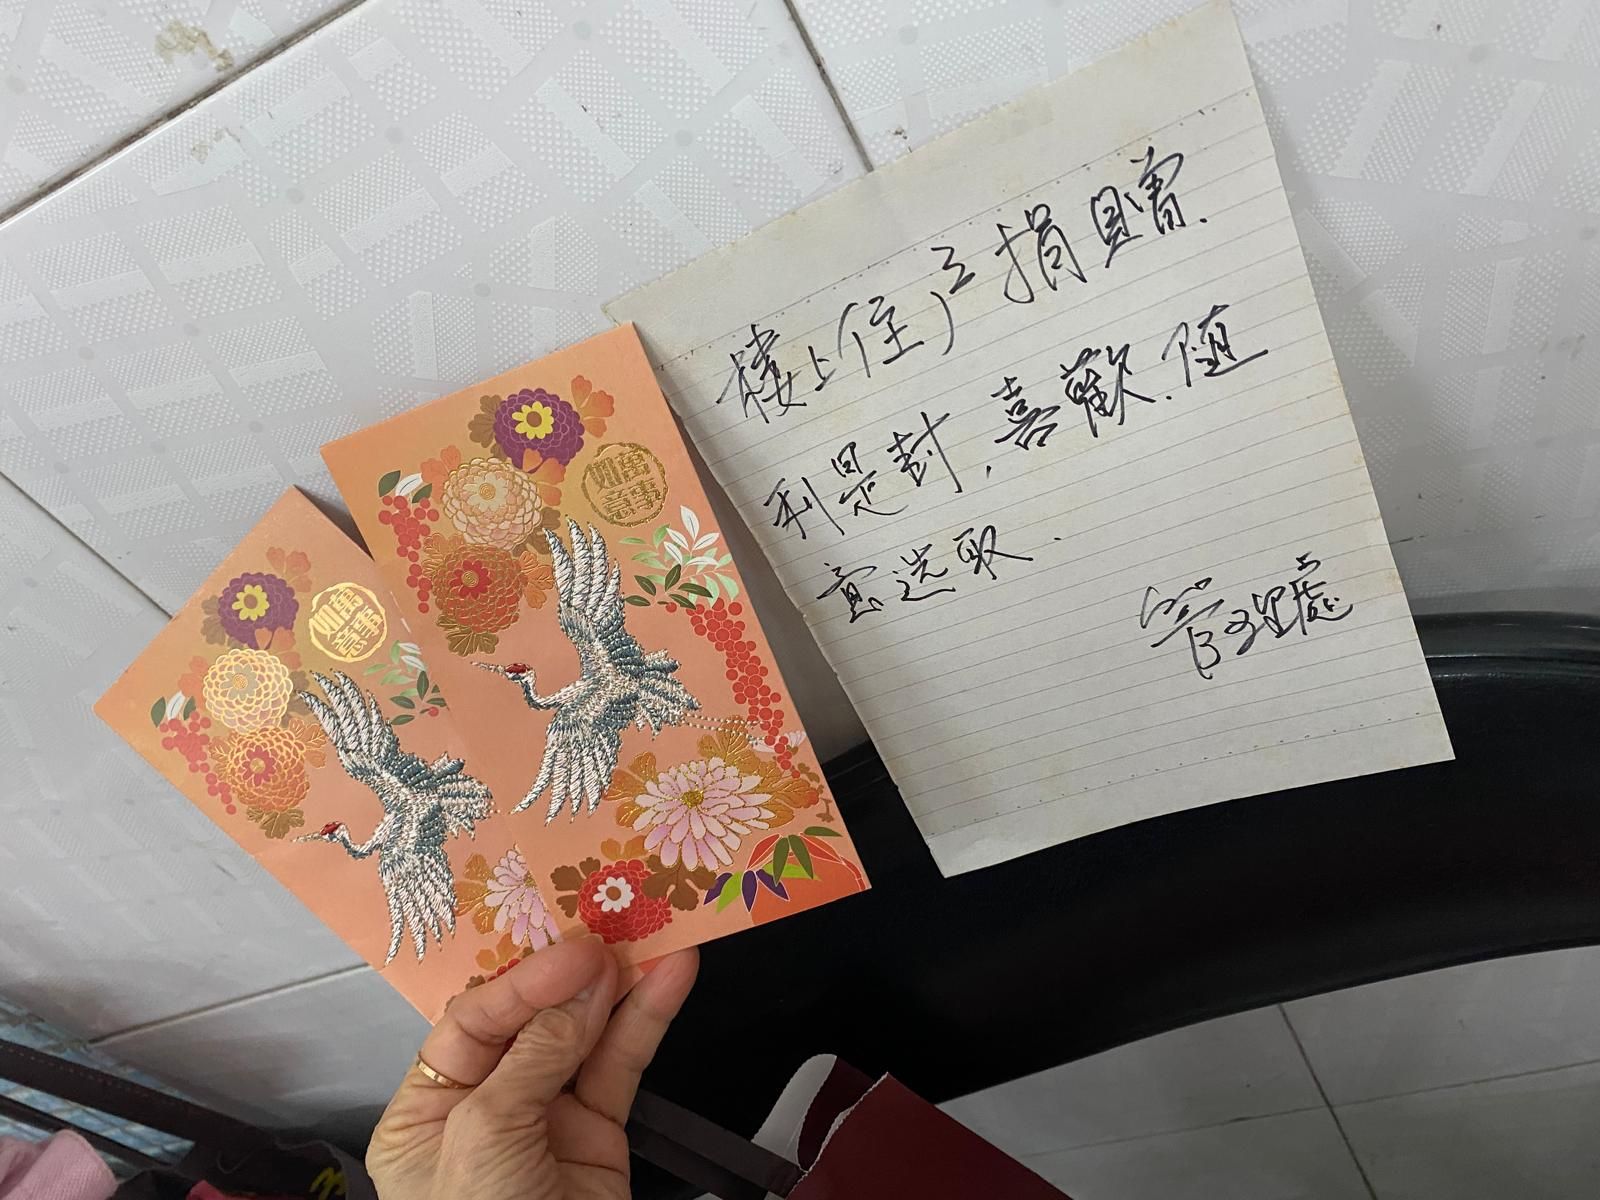 樓上住户捐贈.
利是封，喜歡.随
意选取.
管理處
萬事
如意
萬事
如意